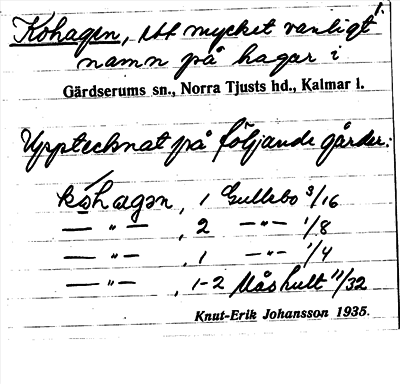 1.
Kohagen, ett mycket vanligt
namn på hagar i
Gärdserums sn., Norra Tjusts hd., Kalmar l.
Upptecknat på följande gårder:
kòhagən, 1 Gullebo 3/16
— " — , 2 — " — 1/8
— " — , 1 — " — 1/4
— " — , 1-2 Måshult 11/32
Knut-Erik Johansson 1935.